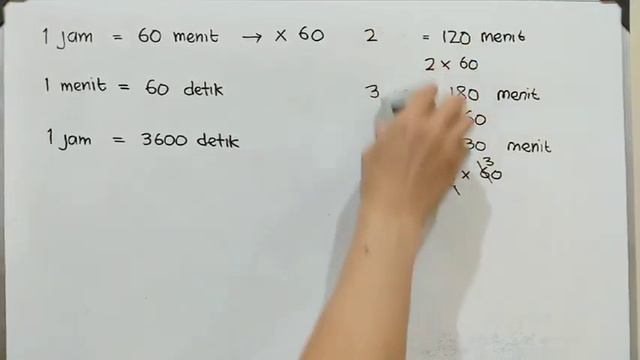 1 jam = 60 menit → x 60
1 menit = 60 detik
1 jam = 3600 detik
2 = 120 menit
2 x 60
3 180 menit
60
30 menit
x 60
3